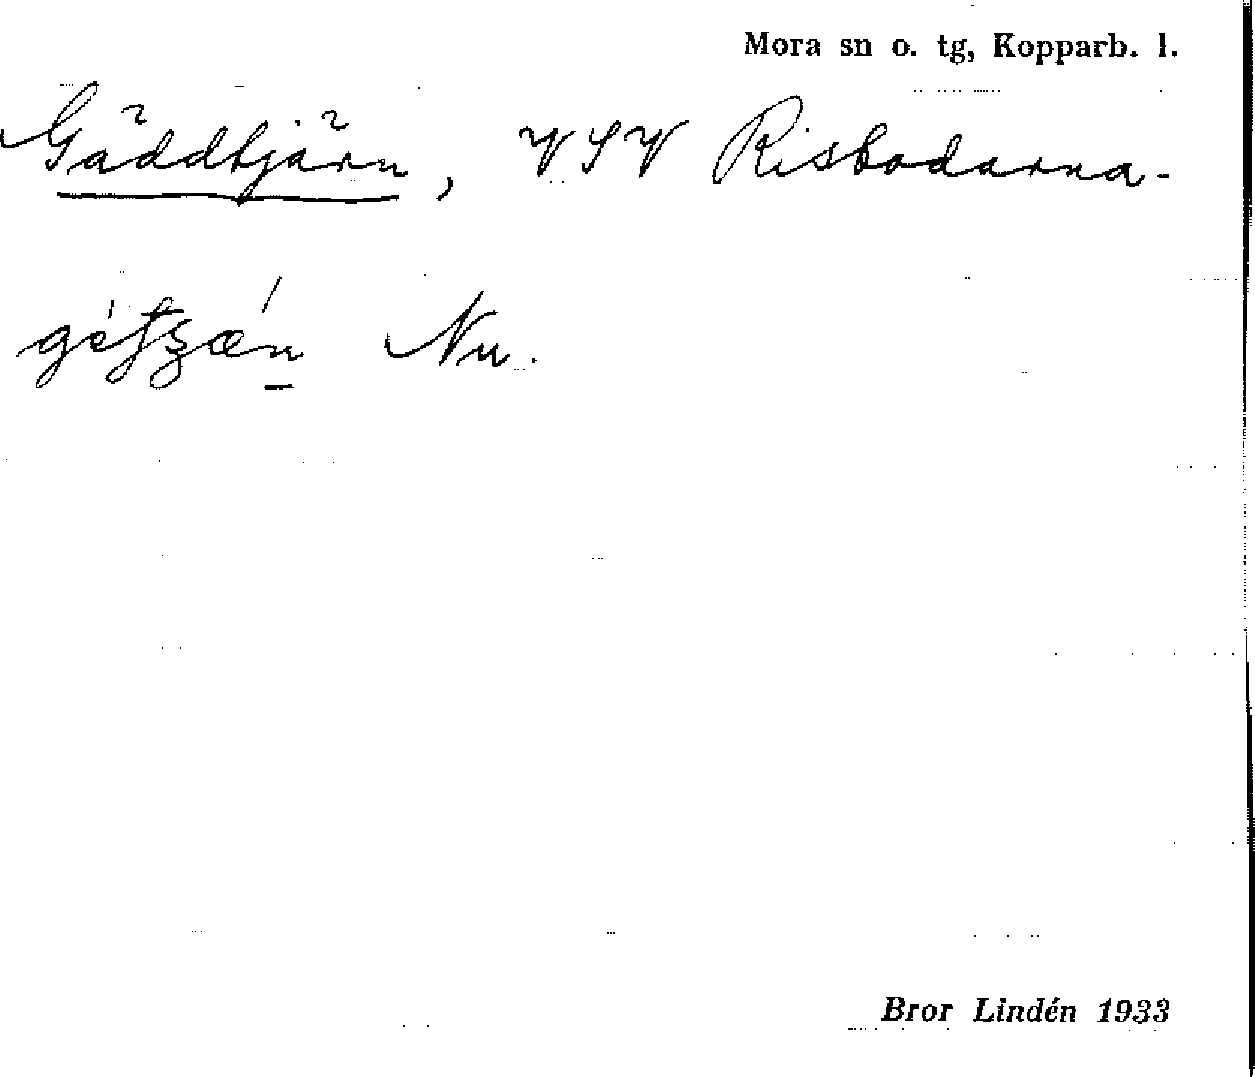 Mora sn o. tg, Kopparb. l.
Gäddtjärn, VSV Risbodarna.
Nu.
Bror Lindén 1933